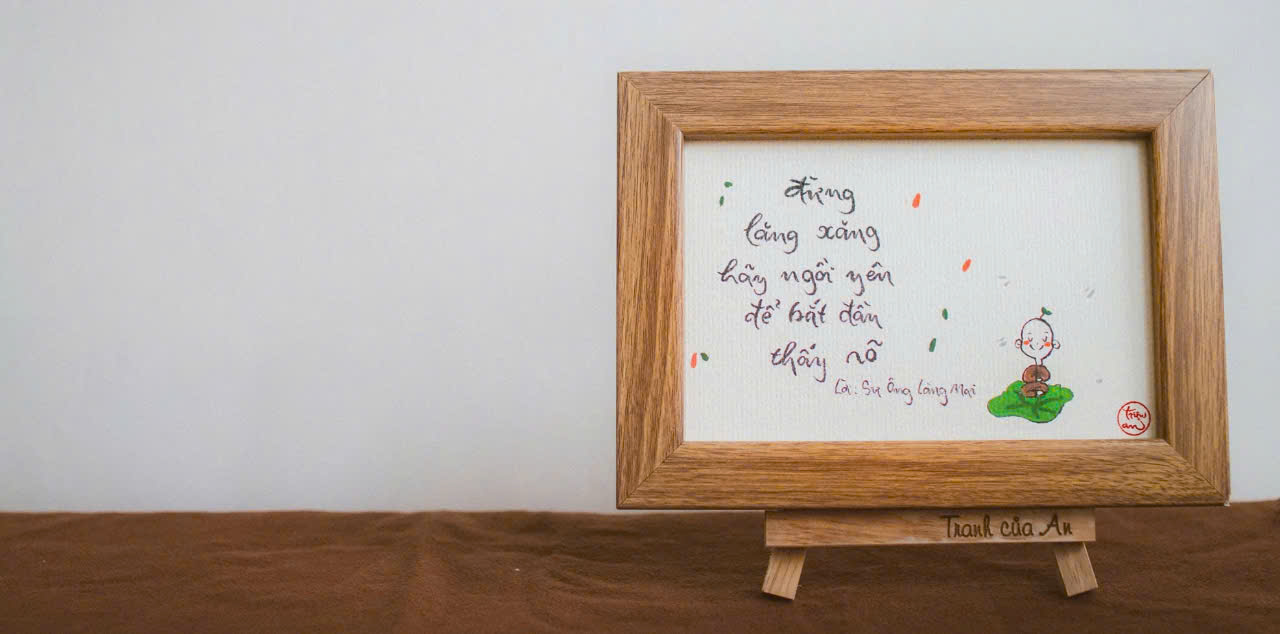 đừng
lăng xăng
hãy ngồi yên
để bắt đầu
thấy rõ
Là: Sư Ông Làng Mai
triệu
an
Tranh của An